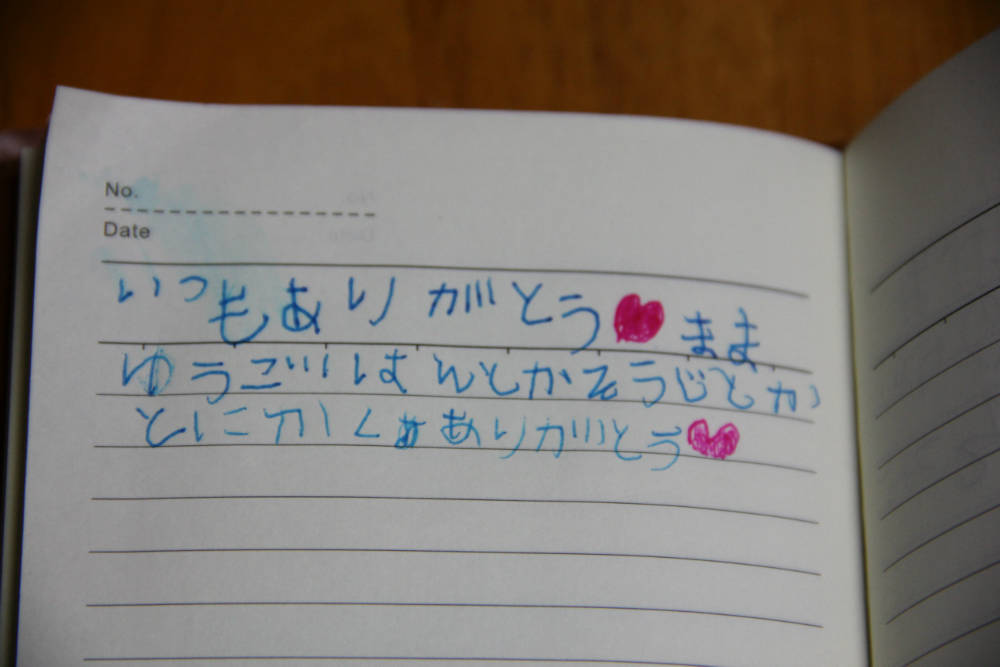 No.
Date
いつもありがとう♥まま
ゆうごはんとかそうじとか
とにかくありがとう♥